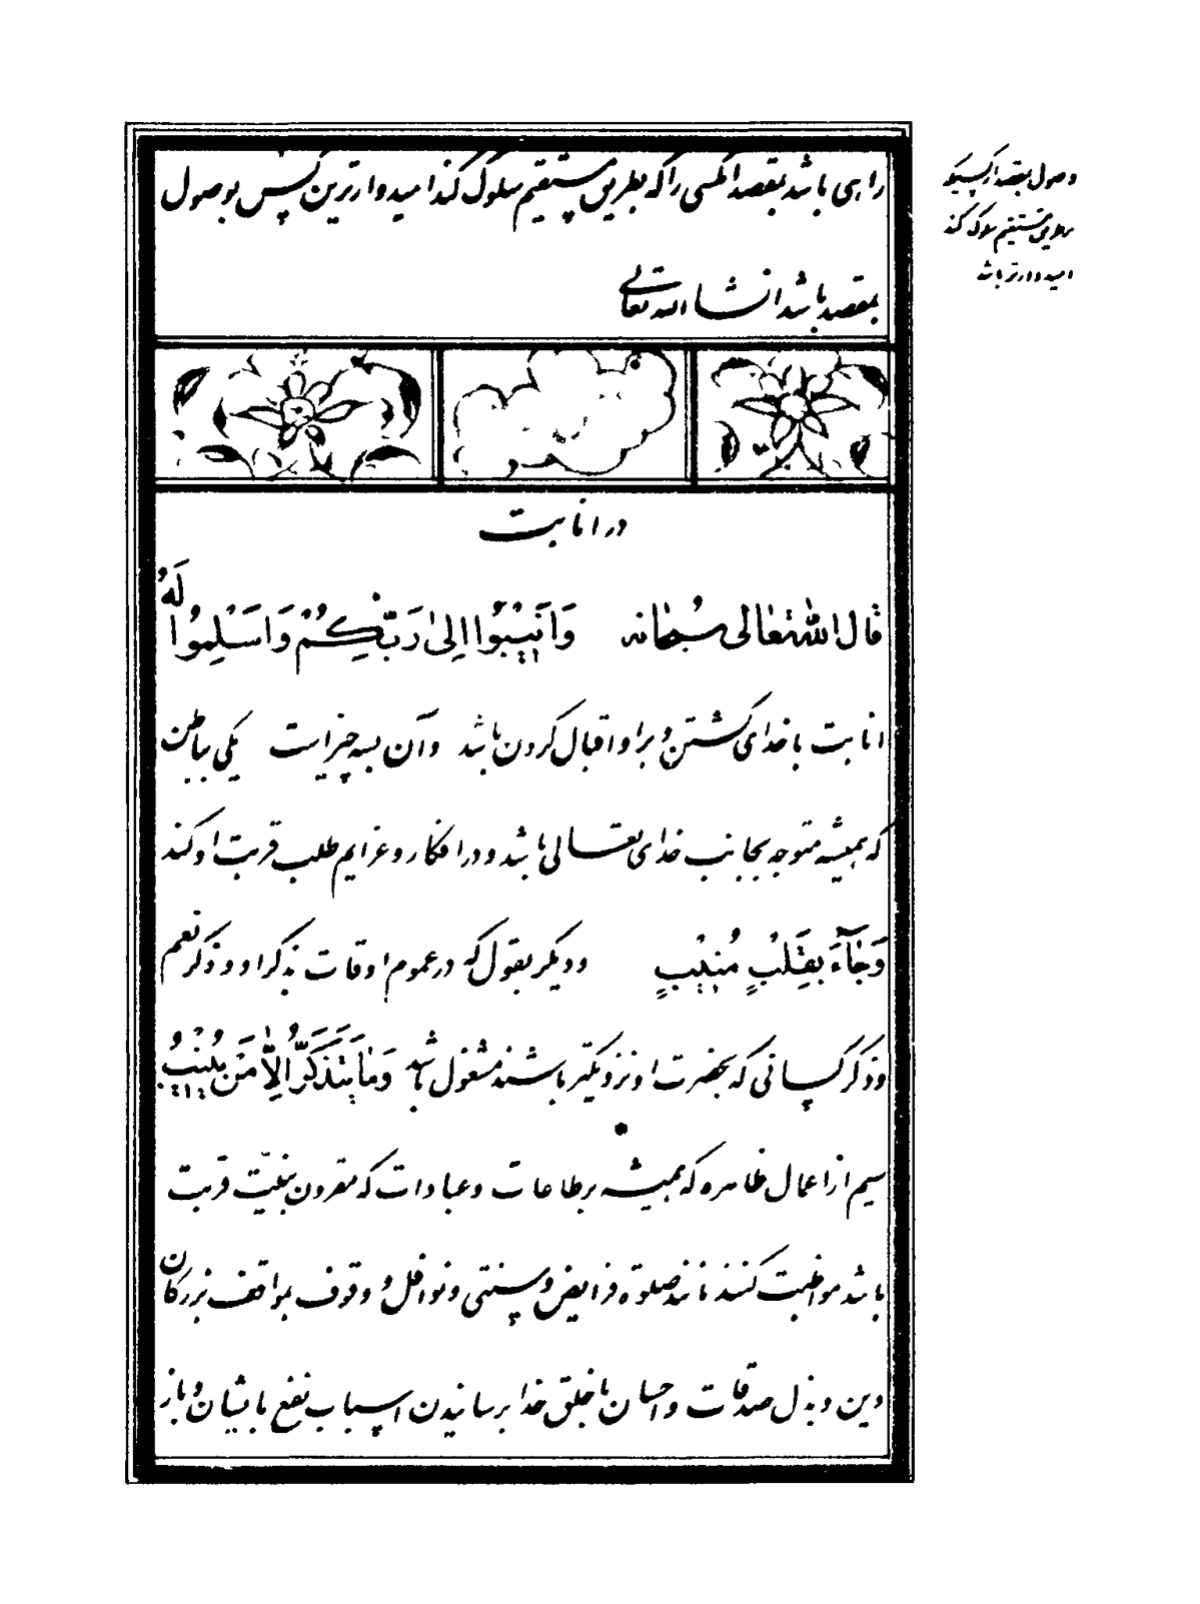 راهی باشد بمقصد اکسی را که بطریق مستقیم سلوک کند امیدوارترین کس بوصول
بمقصد باشد انشا الله تعالی
وصول بمقصد از کسیکه
بطریق مستقیم سلوک کند
امیدوارتر باشد
در انابت
قال الله تعالی سبحانه وَاَنیٖبُوا اِلیٰ رَبِّکُمْ وَاَسْلِمُوا لَهُ
انابت با خدای گشتن و براو اقبال کردن باشد و آن بسه چیز است یکی بباطن
که همیشه متوجه بجانب خدای تعالی باشد و در افکار و عزایم طلب قربت او کند
وَجٰآءَ بِقَلْبٍ مُنیٖبٍ و دیگر بقول که در عموم اوقات بذکر او و ذکر نعم
و ذکر کسانی که بحضرت او نزدیکتر باشند مشغول باشد وَمٰا یَتَذَکَّرُ اِلّٰا مَنْ یُنیٖبُ
سیم از اعمال ظاهره که همیشه بر طاعات و عبادات که مقرون بنیّت قربت
باشد مواظبت کنند مانند صلوة فرایض و سنتی و نوافل و وقوف بمواقف بزرگان
دین و بذل صدقات و احسان با خلق خدا برسانیدن اسباب نفع بایشان و باز